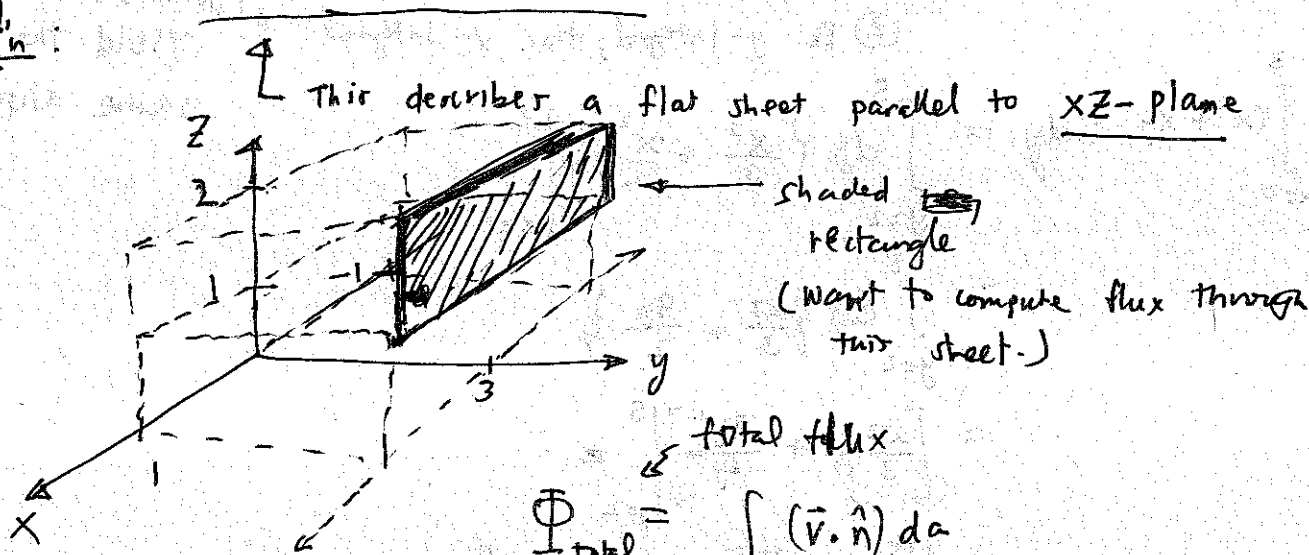 This describes a flat sheet parallel to xz-plane
Z
2
shaded
rectangle
1
-1
(want to compute flux through
this sheet.)
y
3
total flux
1
X
Φ total = ∫ (v⃗ . n̂) da